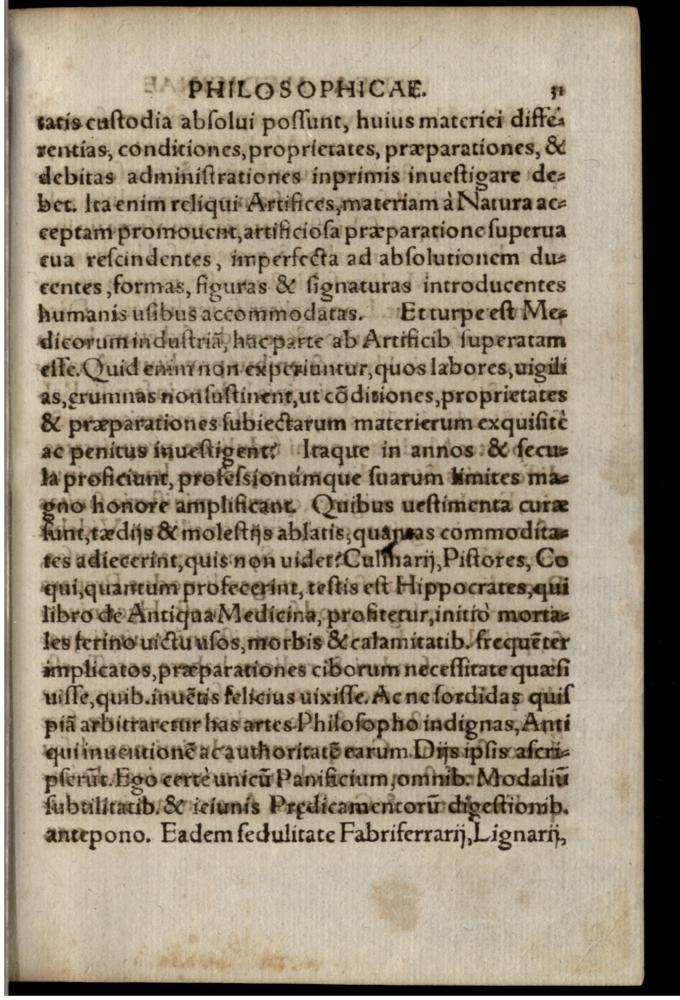 PHILOSOPHICAE. 31
tatis custodia absolui possunt, huius materiei diffe⸗
rentias, conditiones, proprietates, præparationes, &
debitas administrationes inprimis inuestigare de⸗
bet. Ita enim reliqui Artifices, materiam à Natura ac⸗
ceptam promouent, artificiosa præparatione superua
cua rescindentes, imperfecta ad absolutionem du⸗
centes, formas, figuras & signaturas introducentes
humanis usibus accommodatas. Et turpe est Me⸗
dicorum industriã, hac parte ab Artificib superatam
esse. Quid enim non experiuntur, quos labores, uigili
as, ęrumnas non sustinent, ut cõditiones, proprietates
& præparationes subiectarum materierum exquisitè
ac penitus inuestigent? Itaque in annos & secu⸗
la proficiunt, professionúmque suarum limites ma⸗
gno honore amplificant. Quibus uestimenta curæ
sunt, tædijs & molestijs ablatis, quantas commodita⸗
tes adiecerint, quis non uidet? Culinarij, Pistores, Co
qui, quantum profecerint, testis est Hippocrates, qui
libro de Antiqua Medicina, profitetur, initio morta⸗
les ferino uictu usos, morbis & calamitatib. frequẽter
implicatos, præparationes ciborum necessitate quæsi
uisse, quib. inuẽtis felicius uixisse. Ac ne sordidas quis
piã arbitraretur has artes Philosopho indignas, Anti
qui inuentionẽ ac authoritatẽ earum Dijs ipsis ascri⸗
pserũt. Ego certè unicũ Panificium, omnib. Modaliũ
subtilitatib. & ieiunis Prędicamentorũ digestionib.
antepono. Eadem sedulitate Fabriferrarij, Lignarij,